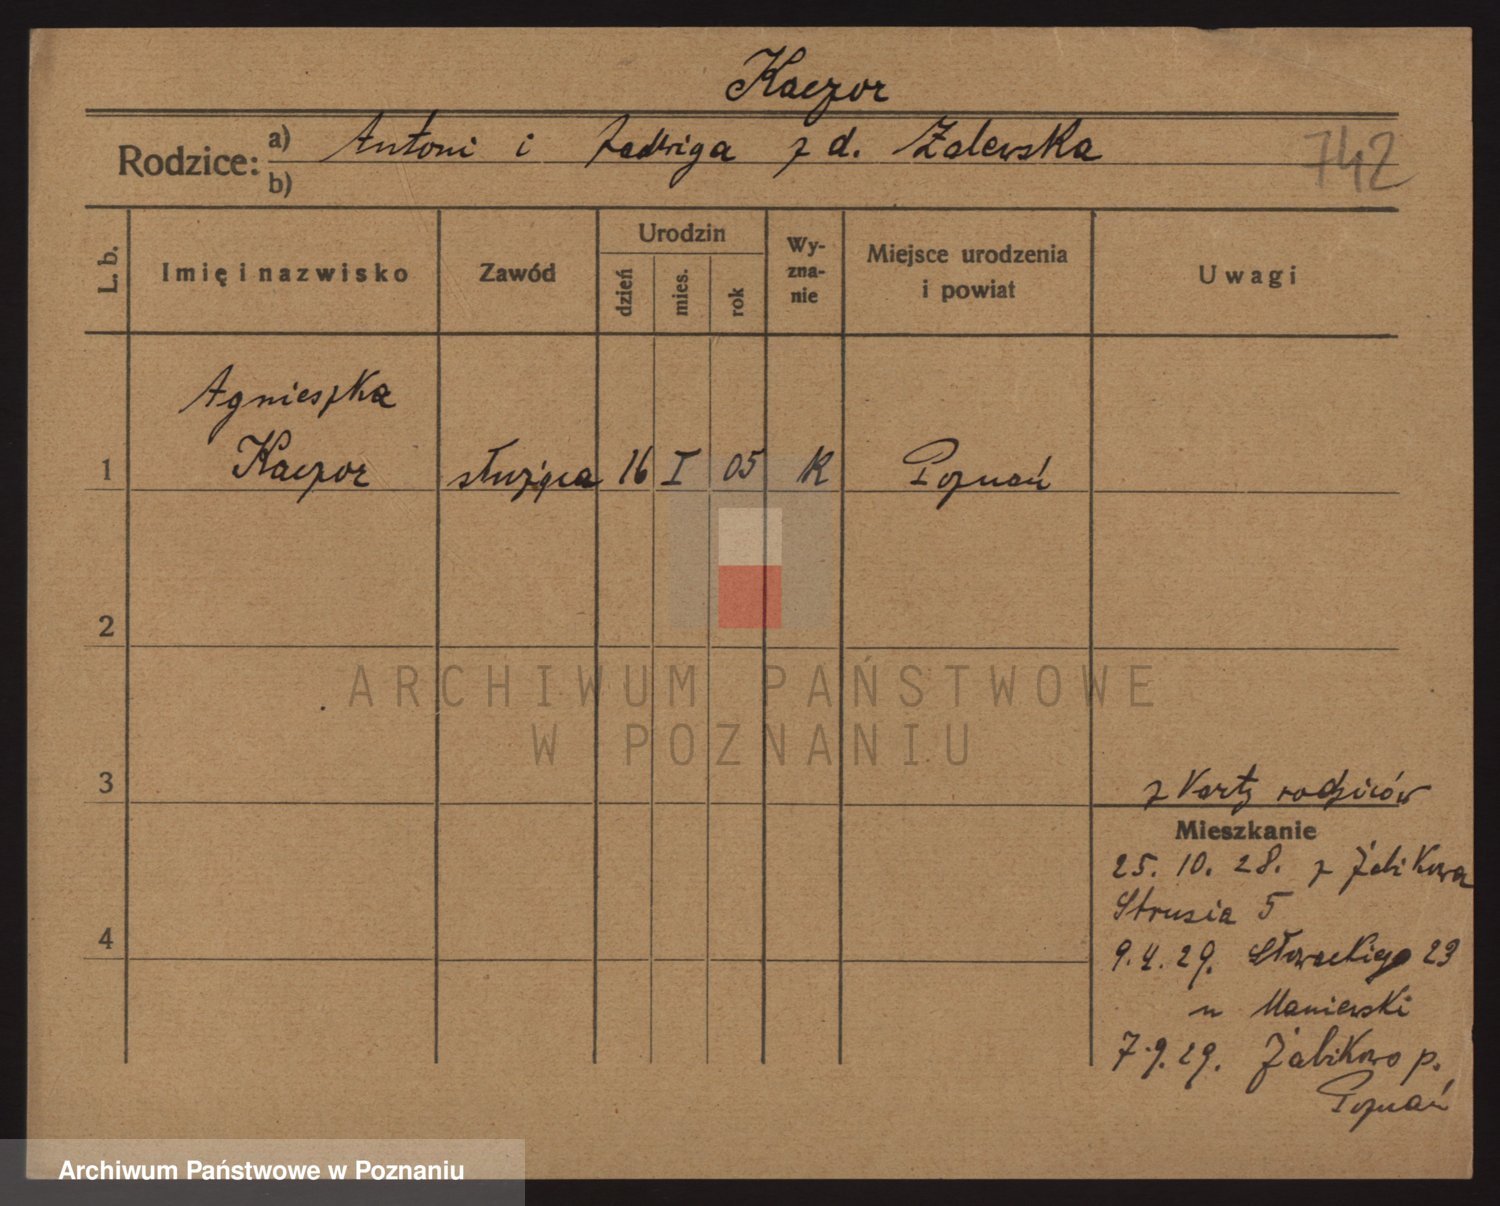 Kaczor
Rodzice: a) Antoni i Jadwiga z d. Zalewska
b)
742
L. b.
Imię i nazwisko
Zawód
Urodzin
dzień
mies.
rok
Wy-
zna-
nie
Miejsce urodzenia
i powiat
Uwagi
Agnieszka
1 Kaczor służąca 16 I 05 K Poznań
2
3
4
z karty rodziców
Mieszkanie
25. 10. 28. z Żabikowa
Strusia 5
9. 4. 29. Słowackiego 23
u Maniewski
7. 9. 29. Żabikowo p.
Poznań
ARCHIWUM PAŃSTWOWE
W POZNANIU
Archiwum Państwowe w Poznaniu